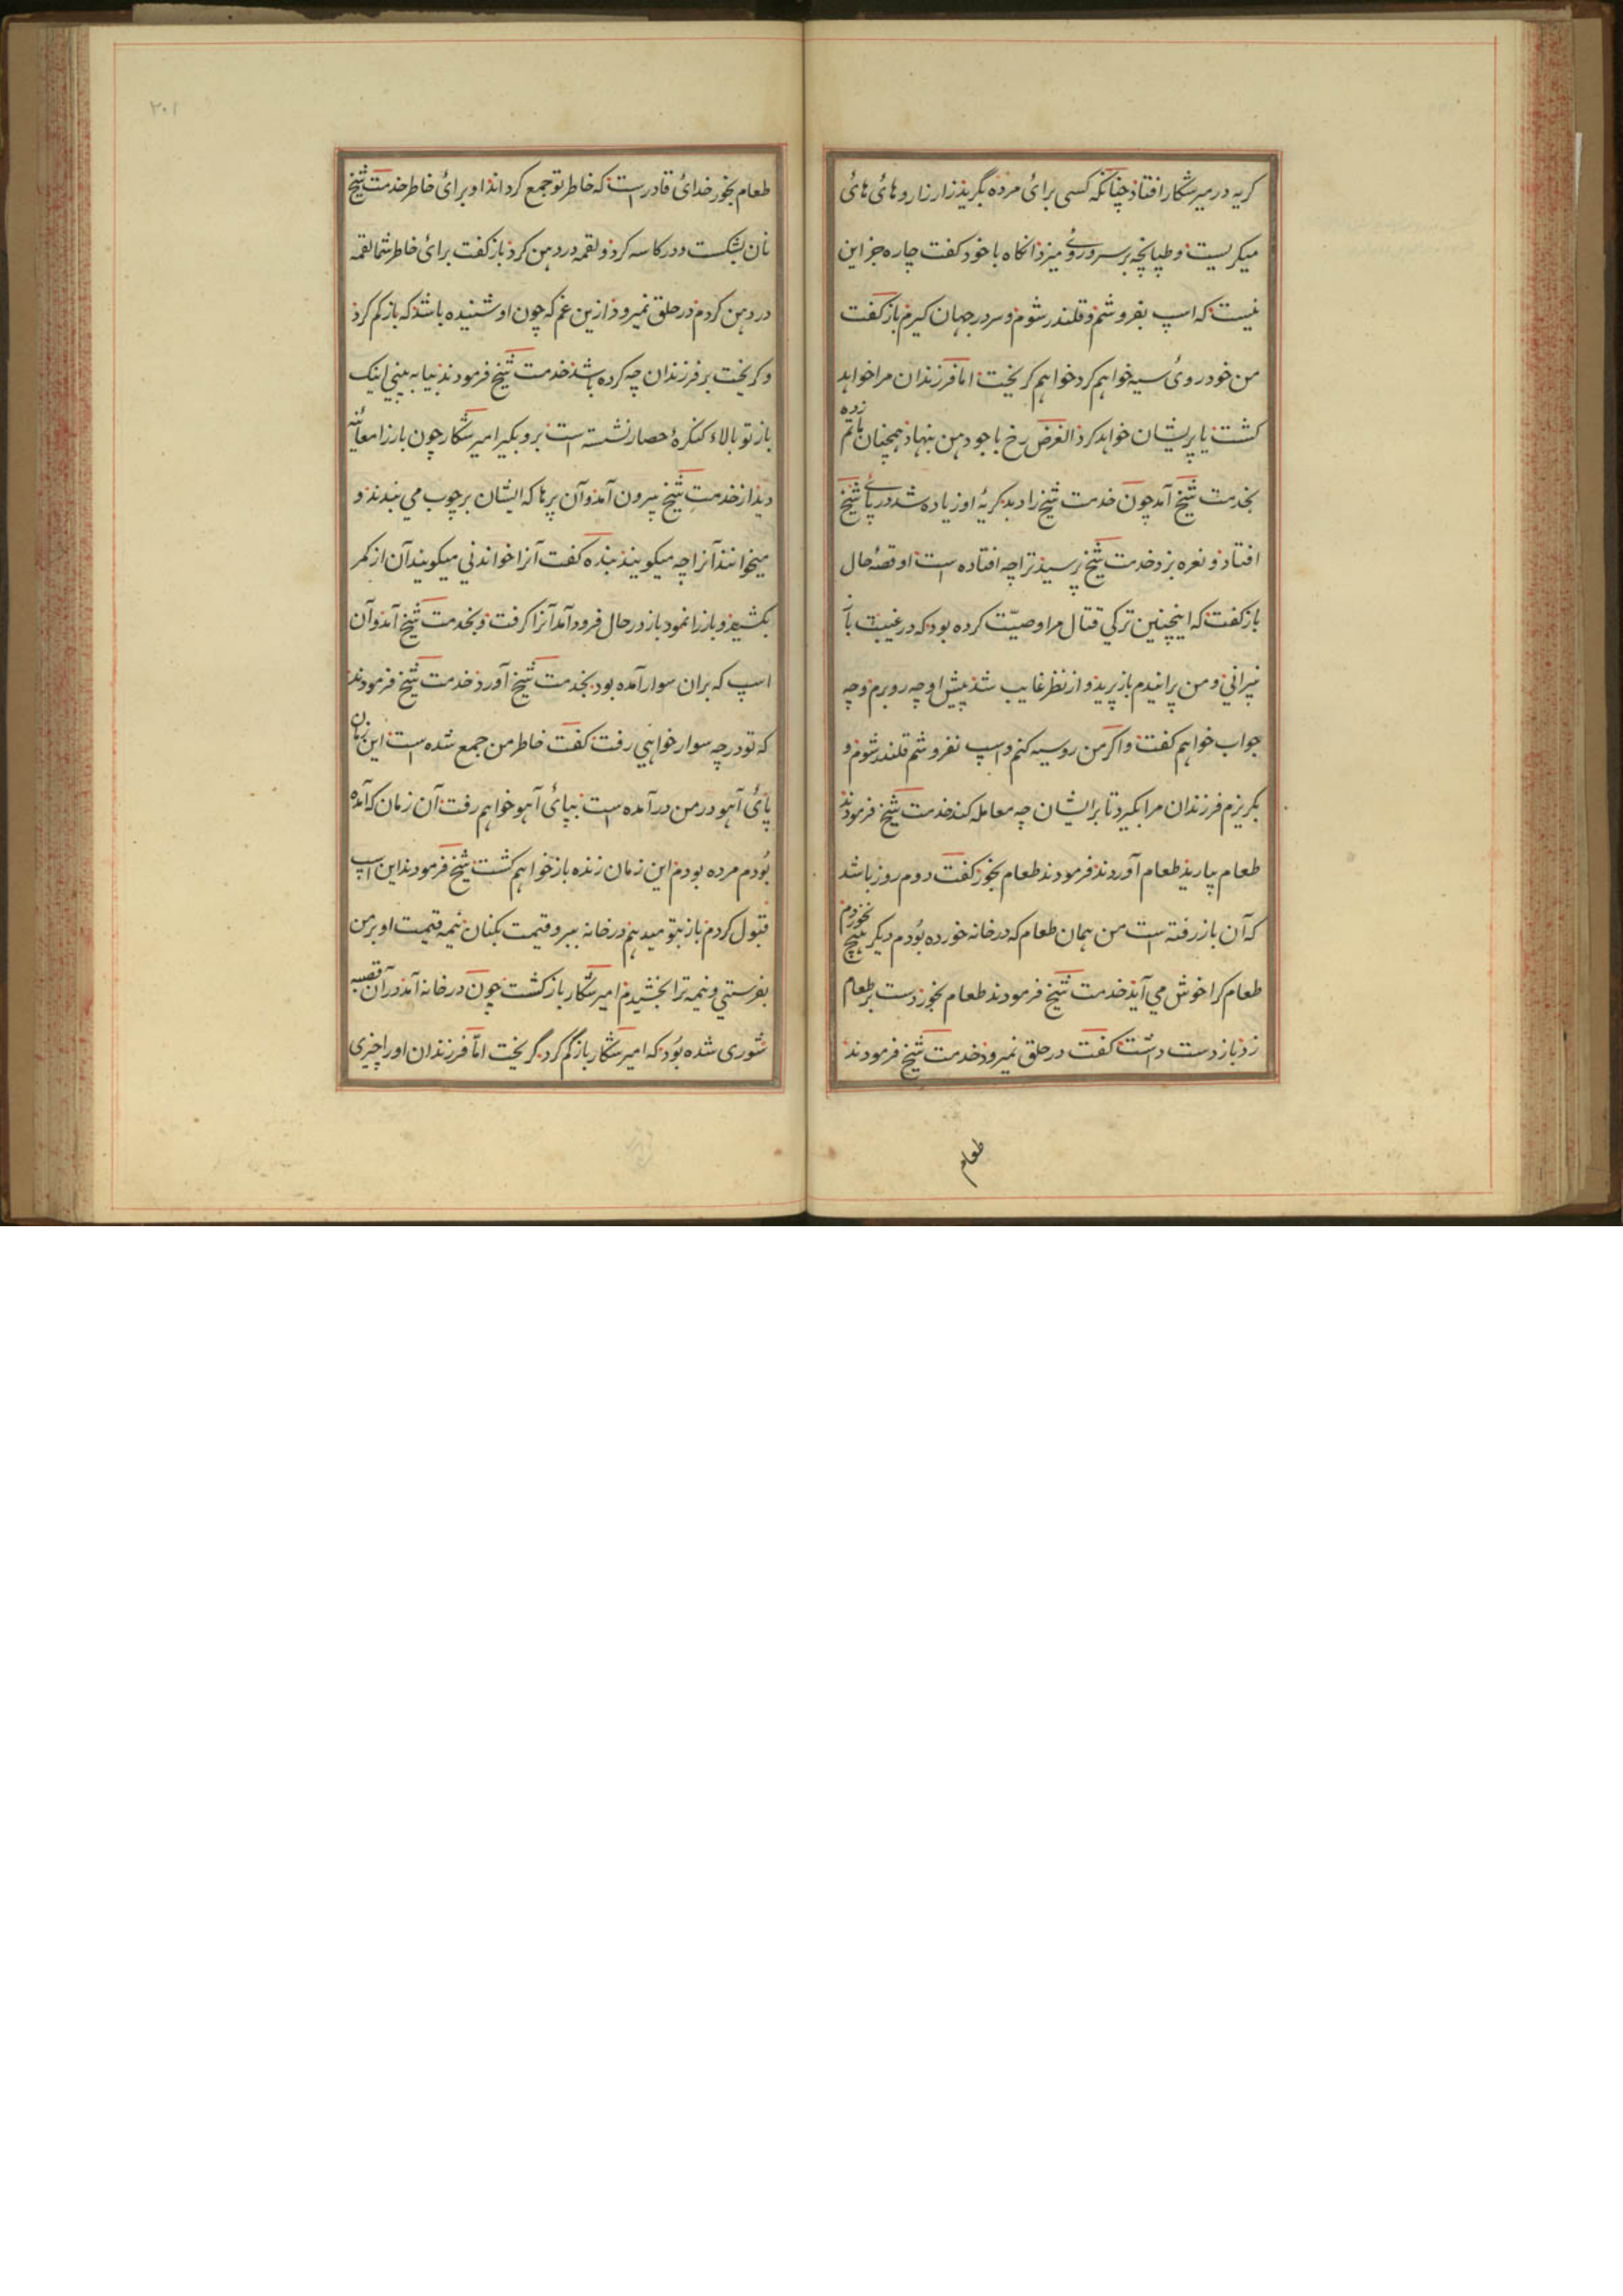 گریه در میر شکار افتاد چنانکه کسی برائ مرده بگرید زار زار و هائ هائ
میگریست و طپانچه بر سر و روئ میزد انگاه با خود گفت چاره جز این
نیست که اسپ بفروشم و قلندر شوم و سر در جهان گیرم باز گفت
من خود روئ سیه خواهم کرد خواهم گریخت اما فرزندان مرا خواهد
کشت یا پریشان خواهد کرد الغرض رخ باجودهن بنهاد همچنان ماتم زده
بخدمت شیخ آمد چون خدمت شیخ را دید گریهٔ او زیاده شد در پائ شیخ
افتاد و نعره بزد خدمت شیخ پرسید ترا چه افتاده است او قصهٔ حال
باز گفت که اینچنین ترکی قتال مرا وصیّت کرده بود که در غیبت باز
نپرانی و من پرانیدم باز پرید و از نظر غایب شد پیش او چه رو برم و چه
جواب خواهم گفت و اگر من رو سیه کنم و اسپ بفروشم قلندر شوم و
بگریزم فرزندان مرا بگیرد تا بر ایشان چه معامله کند خدمت شیخ فرمودند
طعام بیارید طعام آوردند فرمودند طعام بخور گفت دوم روز باشد
که آن باز رفته است من همان طعام که در خانه خورده بودم دیگر هیچ نخوردم
طعام کرا خوش می آید خدمت شیخ فرمودند طعام بخور دست بر طعام
زد باز دست داشت گفت در حلق نمیرود خدمت شیخ فرمودند
طعام
۲۰۱
طعام بخور خدائ قادر است که خاطر تو جمع گرداند او برائ خاطر خدمت شیخ
نان بشکست و در کاسه کرد و لقمه در دهن کرد باز گفت برائ خاطر شما لقمه
در دهن کردم در حلق نمیرود ازین غم که چون او شنیده باشد که باز گم کرد
و گریخت بر فرزندان چه کرده باشد خدمت شیخ فرمودند بیا به بینی اینک
باز تو بالاء کنگرهٔ حصار نشسته است برو بگیر امیر شکار چون باز را معائنه
دید از خدمتِ شیخ بیرون آمد و آن پرها که ایشان بر چوب می بندند و
میخوانند آنرا چه میگویند بنده گفت آنرا خواندنی میگویند آن از کمر
بکشید و باز را نمود باز در حال فرود آمد آنرا گرفت و بخدمت شیخ آمد و آن
اسپ که بران سوار آمده بود بخدمت شیخ آورد خدمت شیخ فرمودند
که تو در چه سوار خواهی رفت گفت خاطر من جمع شده است این زمان
پائ آهو در من در آمده است بپائ آهو خواهم رفت آن زمان که آمده
بُودم مرده بودم این زمان زنده باز خواهم گشت شیخ فرمودند این اسپ
قبول کردم باز بتو میدهم در خانه ببر و قیمت بکنان نیمه قیمت او بر من
بفرستی و نیمه ترا بخشیدم امیر شکار باز گشت چون در خانه آمد در آن قصبه
شوری شده بُود که امیر شکار باز گم کرد گریخت امّا فرزندان او را چیزی